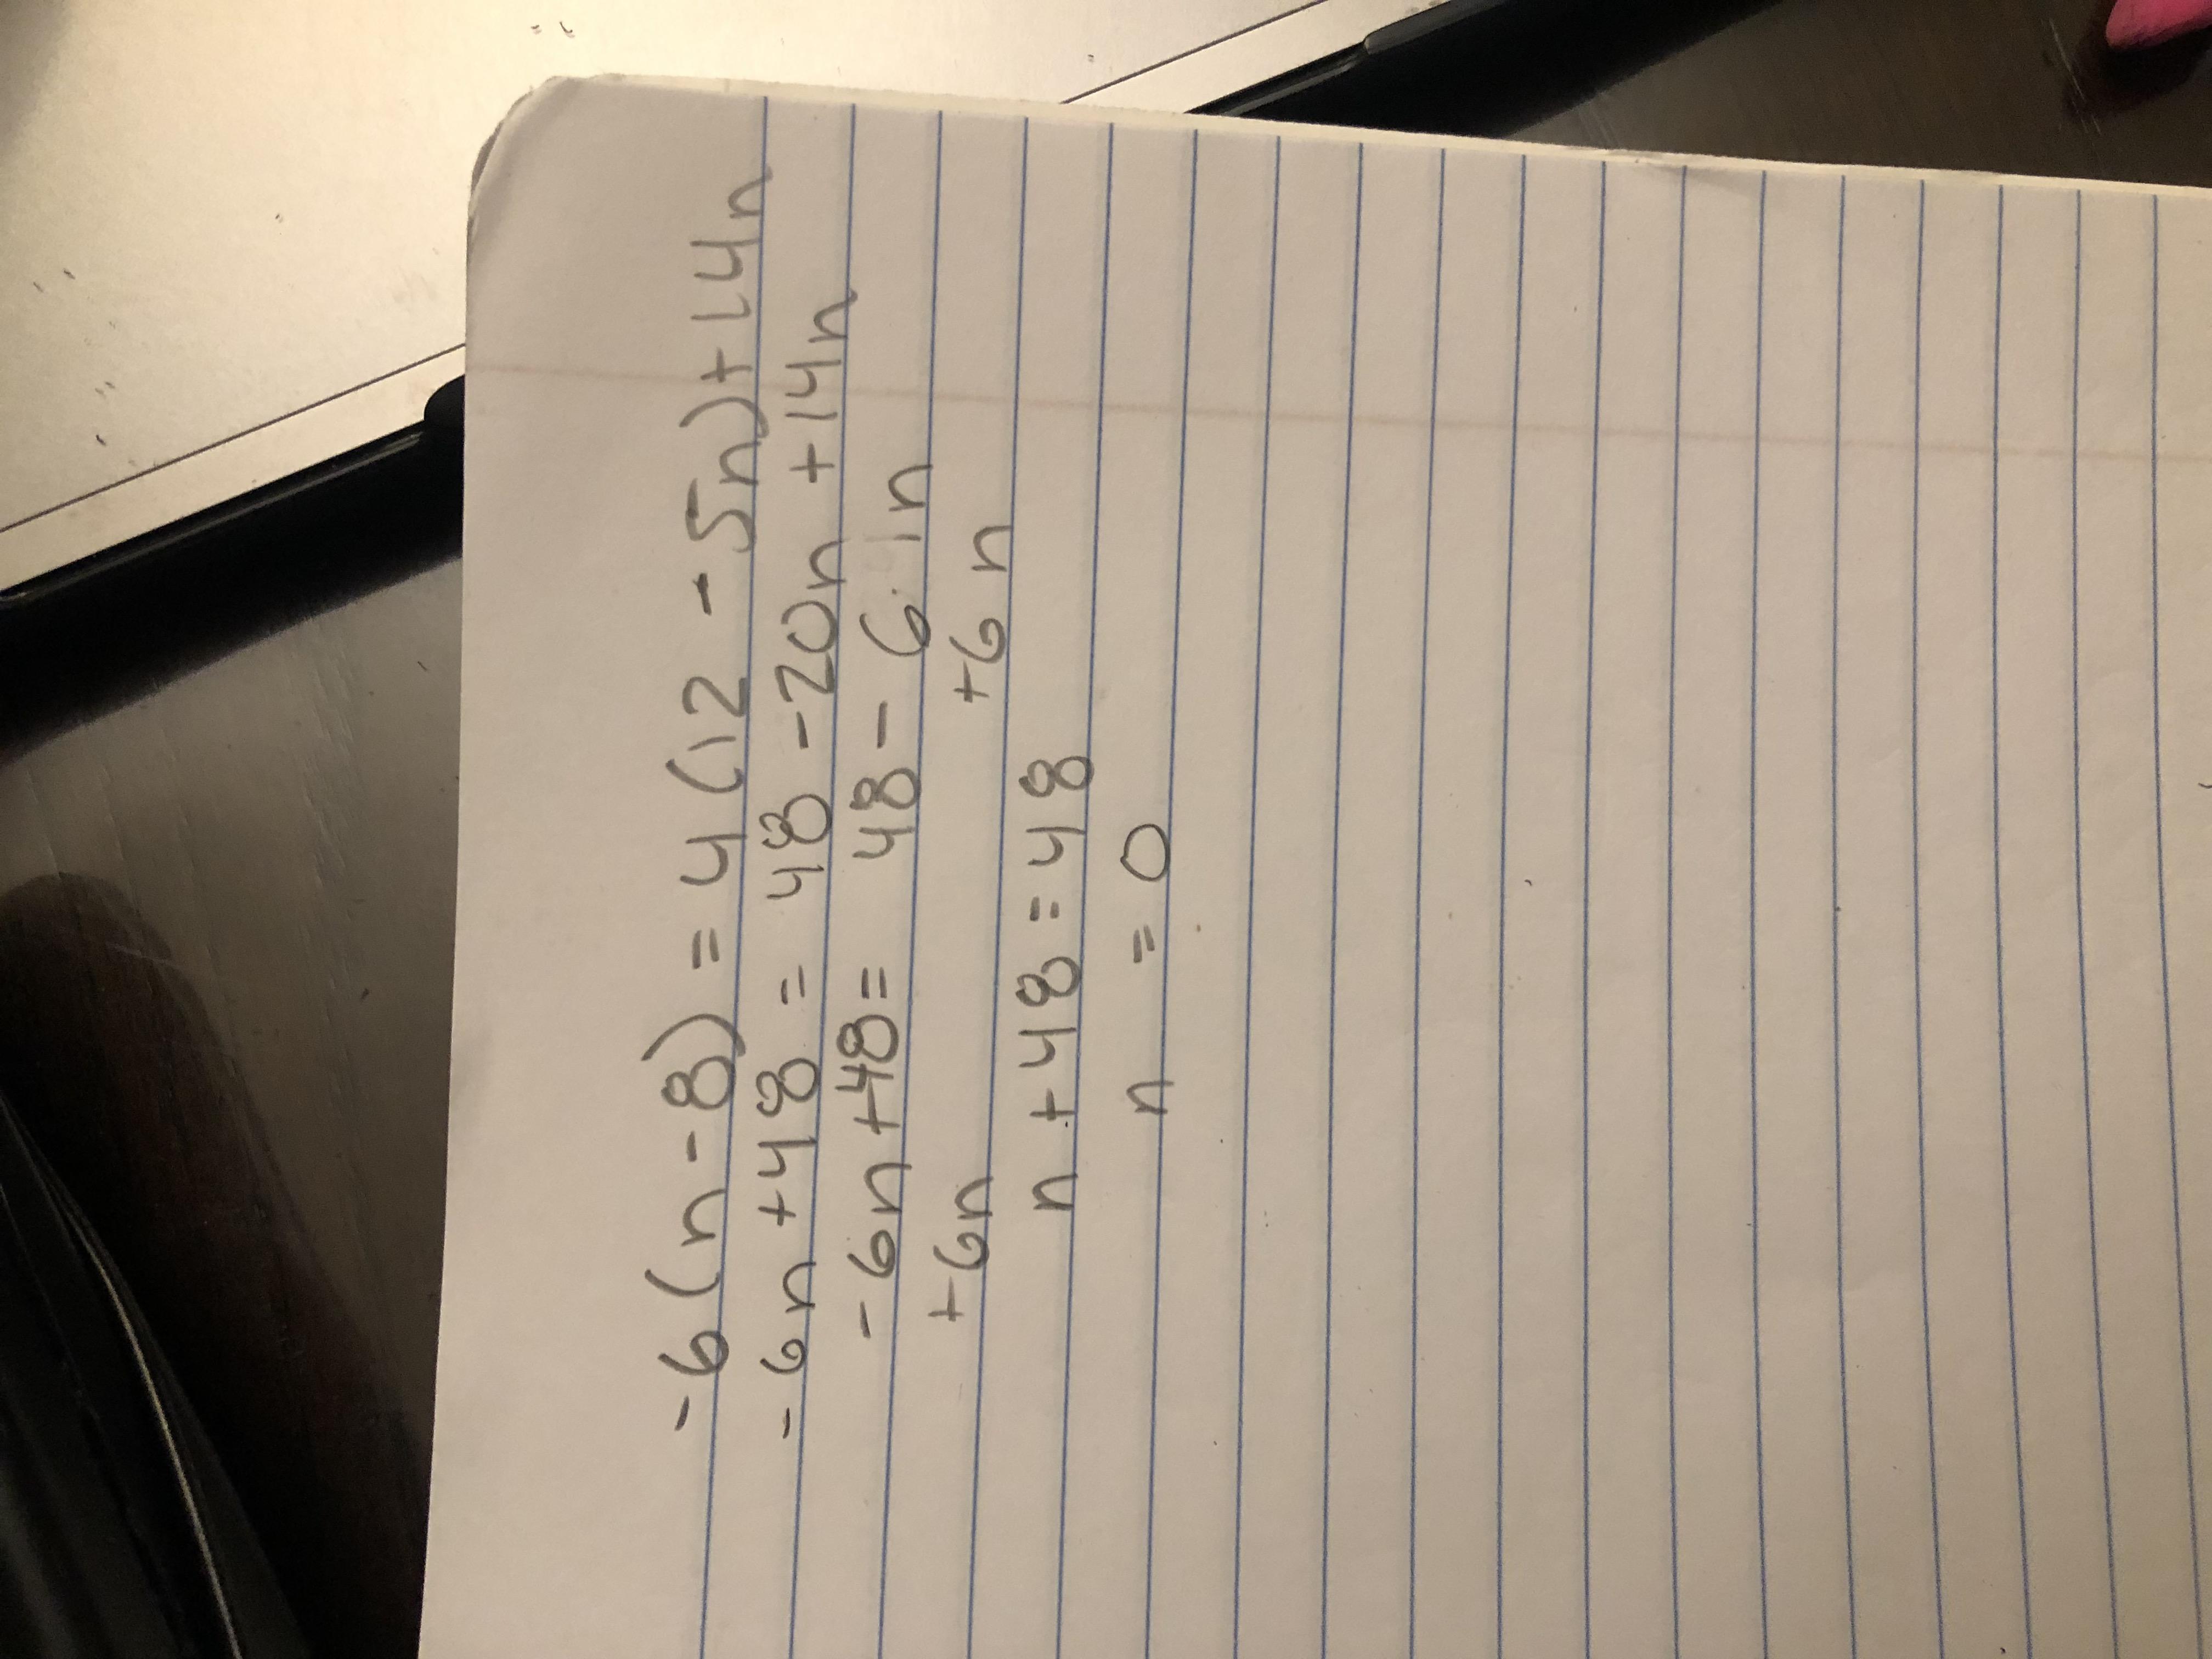 -6(n-8) = 4(12 -5n)+14n
-6n +48 = 48 -20n +14n
-6n +48= 48- 6n
+6n +6n
n +48=48
n = 0